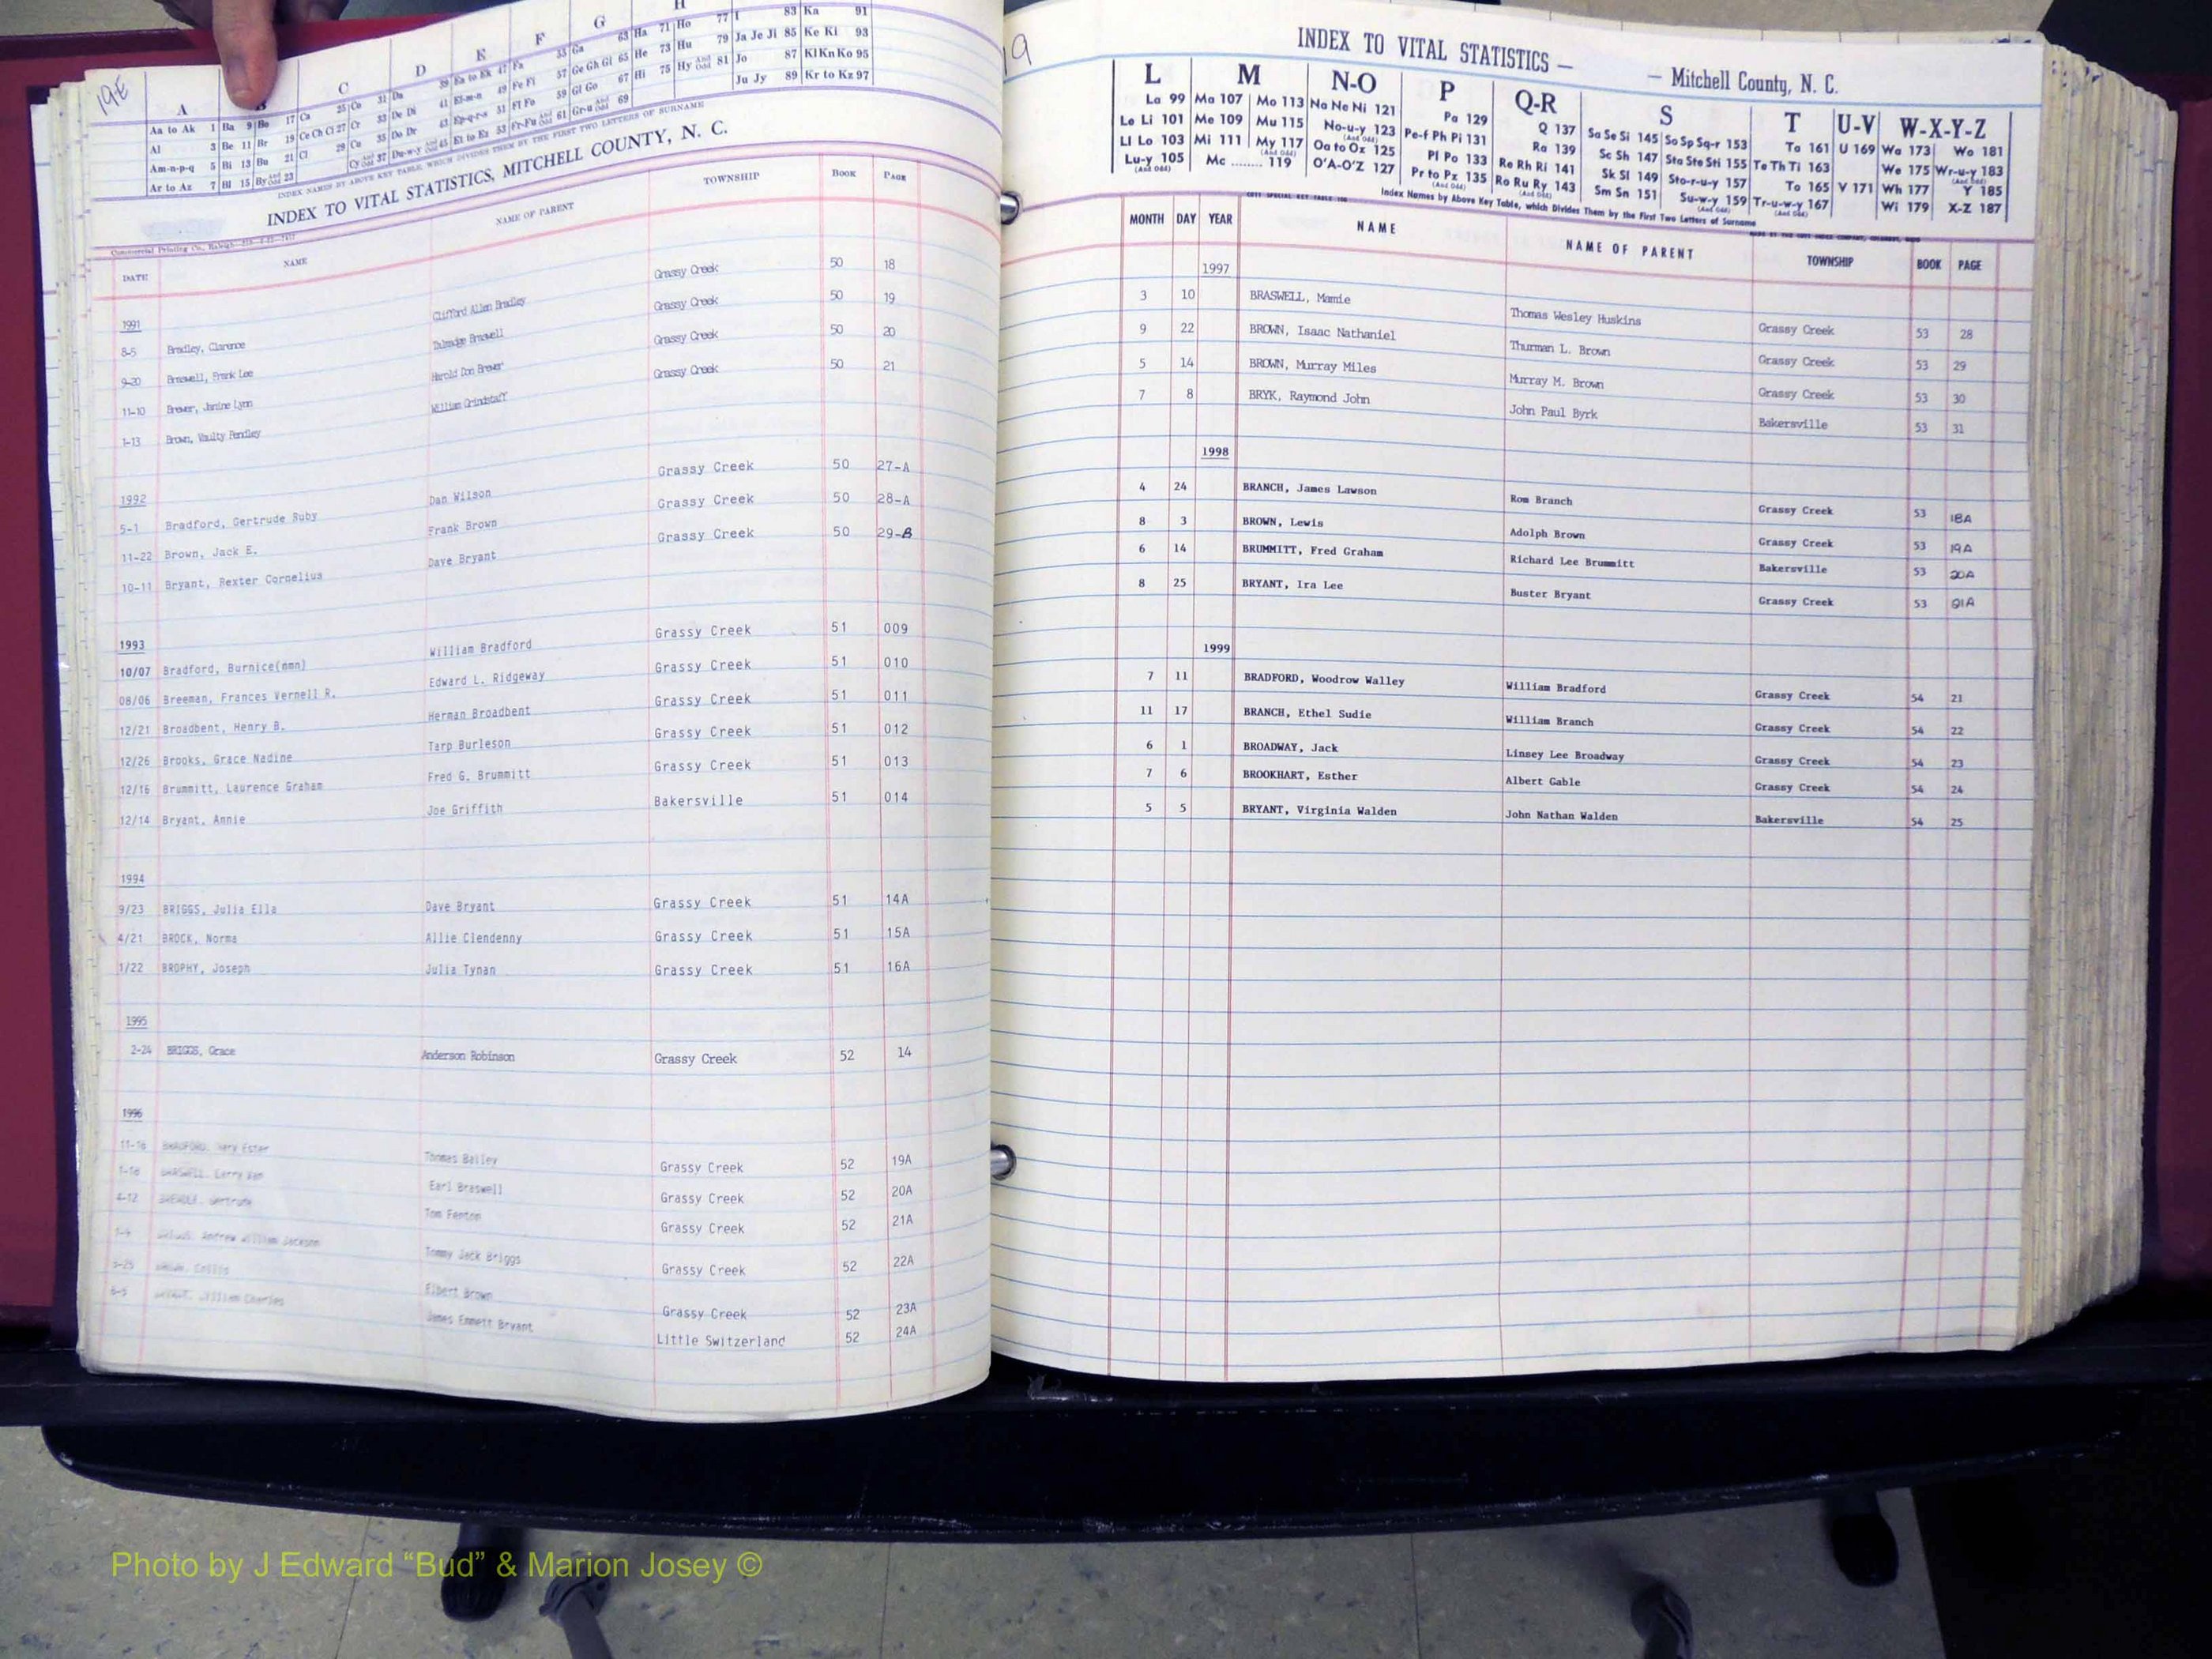 19E
A
B
C
D
E
F
G
H
Aa to Ak 1 Ba 9 Bo 17 Ca 25 Co 31 Da 39 Ea to Ek 47 Fa 55 Ga 63 Ha 71 Ho 77 I 83 Ka 91
Al 3 Be 11 Br 19 Ce Ch Ci 27 Cr 33 De Di 41 El-m-n 49 Fe Fi 57 Ge Gh Gi 65 He 73 Hu 79 Ja Je Ji 85 Ke Ki 93
Am-n-p-q 5 Bi 13 Bu 21 Cl 29 Cu 35 Do Dr 43 Ep-q-r-s 51 Fl Fo 59 Gl Go 67 Hi 75 Hy And Odd 81 Jo 87 Kl Kn Ko 95
Ar to Az 7 Bl 15 By And Odd 23 Cy And Odd 37 Du-w-y And Odd 45 Et to Ez 53 Fr-Fu And Odd 61 Gr-u And Odd 69 Ju Jy 89 Kr to Kz 97
INDEX NAMES BY ABOVE KEY TABLE, WHICH DIVIDES THEM BY THE FIRST TWO LETTERS OF SURNAME
INDEX TO VITAL STATISTICS, MITCHELL COUNTY, N. C.
Commercial Printing Co., Raleigh
DATE NAME NAME OF PARENT TOWNSHIP BOOK PAGE
1991
8-5 Bradley, Clarence Clifford Allen Bradley Grassy Creek 50 18
9-20 Braswell, Frank Lee Talmadge Braswell Grassy Creek 50 19
11-10 Brewer, Janine Lynn Harold Don Brewer Grassy Creek 50 20
1-13 Brown, Vaulty Pendley William Grindstaff Grassy Creek 50 21
1992
5-1 Bradford, Gertrude Ruby Dan Wilson Grassy Creek 50 27-A
11-22 Brown, Jack E. Frank Brown Grassy Creek 50 28-A
10-11 Bryant, Rexter Cornelius Dave Bryant Grassy Creek 50 29-B
1993
10/07 Bradford, Burnice(nmn) William Bradford Grassy Creek 51 009
08/06 Breeman, Frances Vernell R. Edward L. Ridgeway Grassy Creek 51 010
12/21 Broadbent, Henry B. Herman Broadbent Grassy Creek 51 011
12/26 Brooks, Grace Nadine Tarp Burleson Grassy Creek 51 012
12/16 Brummitt, Laurence Graham Fred G. Brummitt Grassy Creek 51 013
12/14 Bryant, Annie Joe Griffith Bakersville 51 014
1994
9/23 BRIGGS, Julia Ella Dave Bryant Grassy Creek 51 14A
4/21 BROCK, Norma Allie Clendenny Grassy Creek 51 15A
1/22 BROPHY, Joseph Julia Tynan Grassy Creek 51 16A
1995
2-24 BRIGGS, Grace Anderson Robinson Grassy Creek 52 14
1996
11-16 BRADFORD, Mary Ester Thomas Bailey Grassy Creek 52 19A
1-18 BRASWELL, Larry Van Earl Braswell Grassy Creek 52 20A
4-12 Gertrude Tom Fenton Grassy Creek 52 21A
Andrew William Jackson Tommy Jack Briggs Grassy Creek 52 22A
Elbert Brown Grassy Creek 52 23A
William Charles James Emmett Bryant Little Switzerland 52 24A
19
INDEX TO VITAL STATISTICS — — Mitchell County, N. C.
L M N-O P Q-R S T U-V W-X-Y-Z
La 99 Ma 107 Mo 113 Na Ne Ni 121 Pa 129 Q 137 Sa Se Si 145 So Sp Sq-r 153 Ta 161 U 169 Wa 173 Wo 181
Le Li 101 Me 109 Mu 115 No-u-y 123 (And Odd) Pe-f Ph Pi 131 Ra 139 Sc Sh 147 Sta Ste Sti 155 Te Th Ti 163 We 175 Wr-u-y 183 (And Odd)
Ll Lo 103 Mi 111 My 117 (And Odd) Oa to Oz 125 Pl Po 133 Re Rh Ri 141 Sk Sl 149 Sto-r-u-y 157 To 165 V 171 Wh 177 Y 185
Lu-y 105 (And Odd) Mc ........ 119 O'A-O'Z 127 Pr to Pz 135 (And Odd) Ro Ru Ry 143 (And Odd) Sm Sn 151 Su-w-y 159 (And Odd) Tr-u-w-y 167 (And Odd) Wi 179 X-Z 187
Index Names by Above Key Table, which Divides Them by the First Two Letters of Surname
MONTH DAY YEAR NAME NAME OF PARENT TOWNSHIP BOOK PAGE
1997
3 10 BRASWELL, Mamie Thomas Wesley Huskins Grassy Creek 53 28
9 22 BROWN, Isaac Nathaniel Thurman L. Brown Grassy Creek 53 29
5 14 BROWN, Murray Miles Murray M. Brown Grassy Creek 53 30
7 8 BRYK, Raymond John John Paul Byrk Bakersville 53 31
1998
4 24 BRANCH, James Lawson Rom Branch Grassy Creek 53 18A
8 3 BROWN, Lewis Adolph Brown Grassy Creek 53 19A
6 14 BRUMMITT, Fred Graham Richard Lee Brummitt Bakersville 53 20A
8 25 BRYANT, Ira Lee Buster Bryant Grassy Creek 53 21A
1999
7 11 BRADFORD, Woodrow Walley William Bradford Grassy Creek 54 21
11 17 BRANCH, Ethel Sudie William Branch Grassy Creek 54 22
6 1 BROADWAY, Jack Linsey Lee Broadway Grassy Creek 54 23
7 6 BROOKHART, Esther Albert Gable Grassy Creek 54 24
5 5 BRYANT, Virginia Walden John Nathan Walden Bakersville 54 25
Photo by J Edward “Bud” & Marion Josey ©